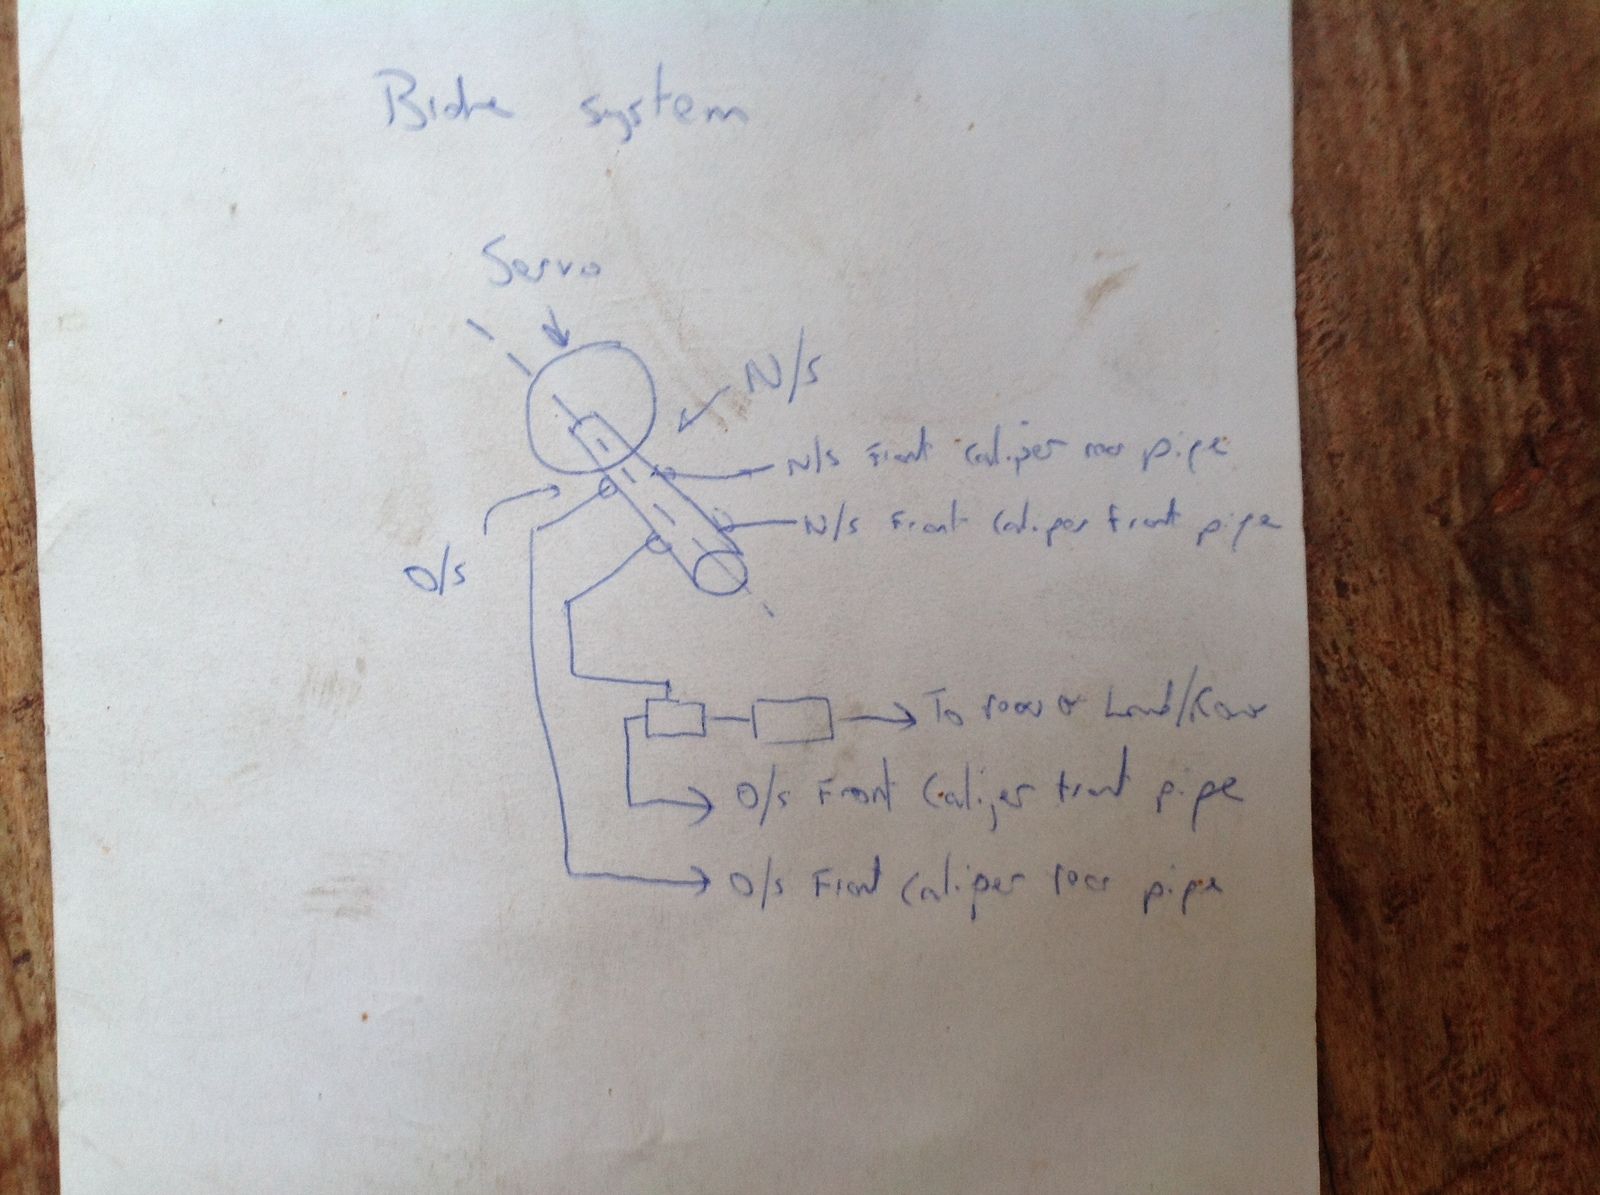 Brake system
Servo
N/S
N/S Front Caliper rear pipe
N/S Front Caliper Front pipe
O/S
To rear
O/S Front Caliper front pipe
O/S Front Caliper rear pipe